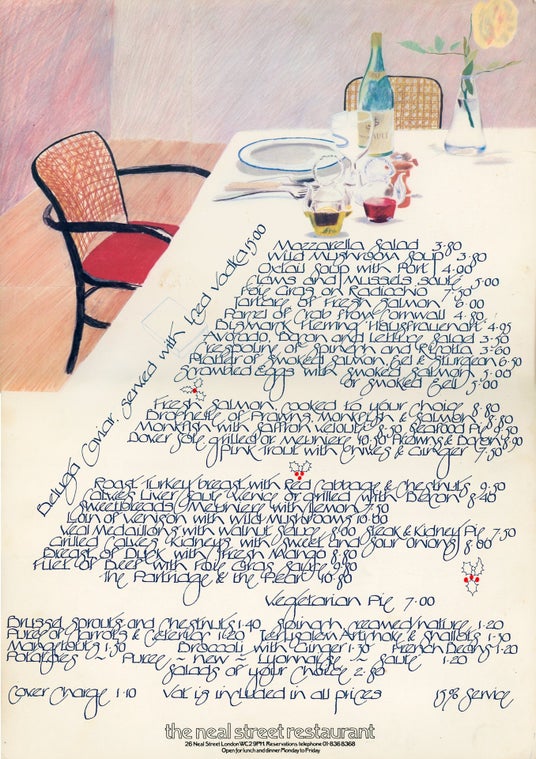 Beluga Caviar. Served with Iced Vodka. 15.00
Mozzarella Salad 3.80
Wild Mushroom Soup 3.50
Oxtail Soup with Port 4.00
Clams and Mussels sauté 5.00
Foie Gras on Radicchio 7.50
Tartare of Fresh Salmon 6.00
Parcel of Crab from Cornwall 4.80
Bismark Herring 'Hausfrauenart' 4.95
Avocado Bacon and Lettuce Salad 3.50
of Spinach and Ricotta 3.60
Platter of Smoked Salmon, Eel & Sturgeon 6.50
Scrambled Eggs with Smoked Salmon 5.00
or Smoked Eel 5.00
Fresh Salmon cooked to your choice 8.80
Brochette of Prawns, Monkfish & Salmon 8.80
Monkfish with Saffron Velouté 8.50 Seafood Pie 9.50
Dover Sole grilled or meunière 10.50 Prawns & Bacon 8.90
Pink Trout with Chives & Ginger 7.50
Roast Turkey breast with Red Cabbage & Chestnuts 9.50
Calves Liver Sauté Venice or grilled with Bacon 8.40
Sweetbreads Meunière with Lemon 7.50
Loin of Venison with Wild Mushrooms 10.00
Veal Medallions with Walnut Sauce 8.00 Steak & Kidney Pie 7.50
Grilled Calves Kidneys with Sweet and Sour Onions 8.00
Breast of Duck with Fresh Mango 8.80
Fillet of Beef with Foie Gras Sauce 9.80
The Partridge & the Pear 10.80
Vegetarian Pie 7.00
Brussel Sprouts and Chestnuts 1.40 Spinach creamed/nature 1.20
Puree of Carrots & Celeriac 1.20 Jerusalem Artichoke & Shallots 1.30
Mangetouts 1.50 Broccoli with Ginger 1.30 French Beans 1.20
Potatoes ~ Puree ~ new ~ Lyonnaise ~ Sauté 1.20
Salads of your Choice 2.80
Cover Charge 1.10 Vat is included in all prices 15% Service
the neal street restaurant
26 Neal Street London WC2 9PH Reservations telephone 01-836 8368
Open for lunch and dinner Monday to Friday